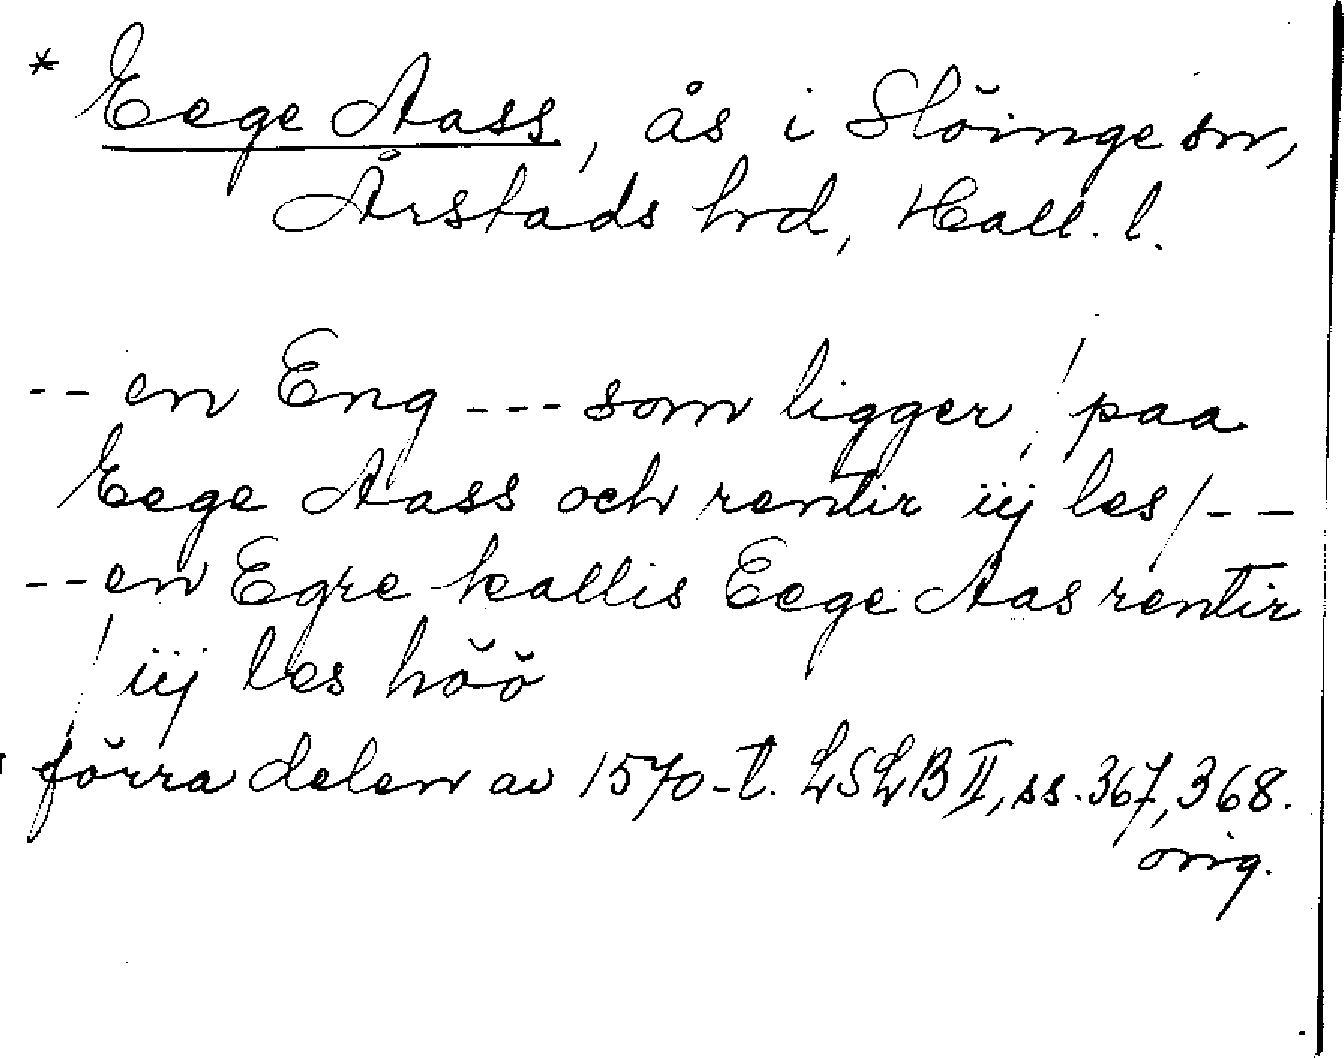 * Eege Aass, ås i Slöinge sn,
Årstads hrd, Hall. l.
-- en Eng --- som ligger / paa
Eege Aass och rentir iij les / --
-- en Egre kallis Eege Aas rentir
/ iij les höö
förra delen av 1570-t. LSLB II, ss. 367, 368.
orig.